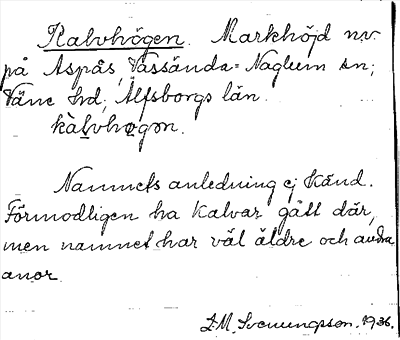 Kalvhögen. Markhöjd nv
på Aspås, Vassända-Naglum sn;
Väne hd, Älfsborgs län.
kalvhøgən.
Namnets anledning ej känd.
Förmodligen ha kalvar gått där,
men namnet har väl äldre och andra
anor.
D.M. Svenungsson. 1936.